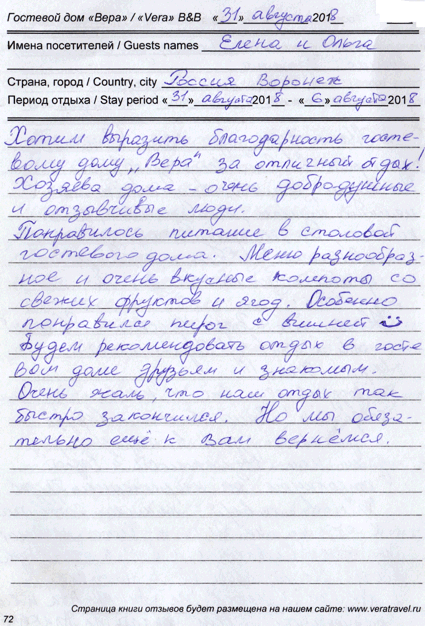 Гостевой дом «Вера» / «Vera» B&B «31» августа 2018
Имена посетителей / Guests names Елена и Ольга
Страна, город / Country, city Россия Воронеж
Период отдыха / Stay period «31» августа 2018 - «6» августа 2018
Хотим выразить благодарность госте-
вому дому ,,Вера" за отличный отдых!
Хозяева дома - очень добродушные
и отзывчивые люди.
Понравилось питание в столовой
гостевого дома. Меню разнообраз-
ное и очень вкусные компоты со
свежих фруктов и ягод. Особенно
понравился пирог с вишней
Будем рекомендовать отдых в госте
вом доме друзьям и знакомым.
Очень жаль, что наш отдых так
быстро закончился. Но мы обяза-
тельно ещё к Вам вернёмся.
Страница книги отзывов будет размещена на нашем сайте: www.veratravel.ru
72